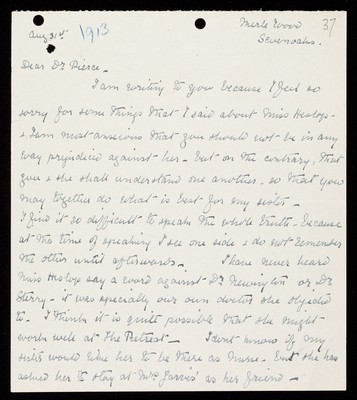 Merle Wood 37
Aug 31st 1913 Sevenoaks.
Dear Dr Pierce_
I am writing to you because I feel so
sorry for some things that I said about Miss Heslop -
& I am most anxious that you should not be in any
way prejudiced against her - but on the contrary, that
you & she shall understand one another - so that you
may together do what is best for my sister -
I find it so difficult to speak the whole truth - because
at the time of speaking I see one side & do not remember
the other until afterwards - I have never heard
Miss Heslop say a word against Dr Newington or Dr
- it was specially our own doctor she objected
to - I think it is quite possible that she might
work well at The Retreat - I don't know if my
sister would like her to be there as Nurse - but she has
asked her to stay at Mrs Jarvis' as her friend -